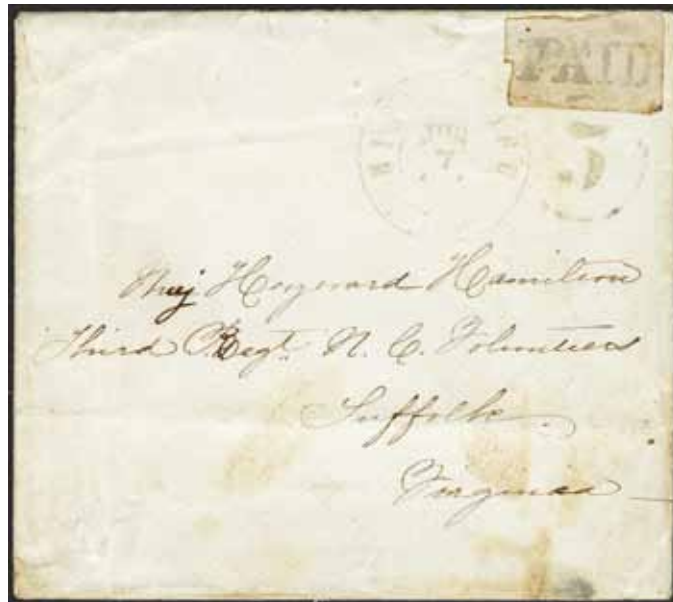 PAID
5
JUN
7
Maj Haywood Hamilton
Third Regt. N. C. Volunteers
Suffolk.
Virginia